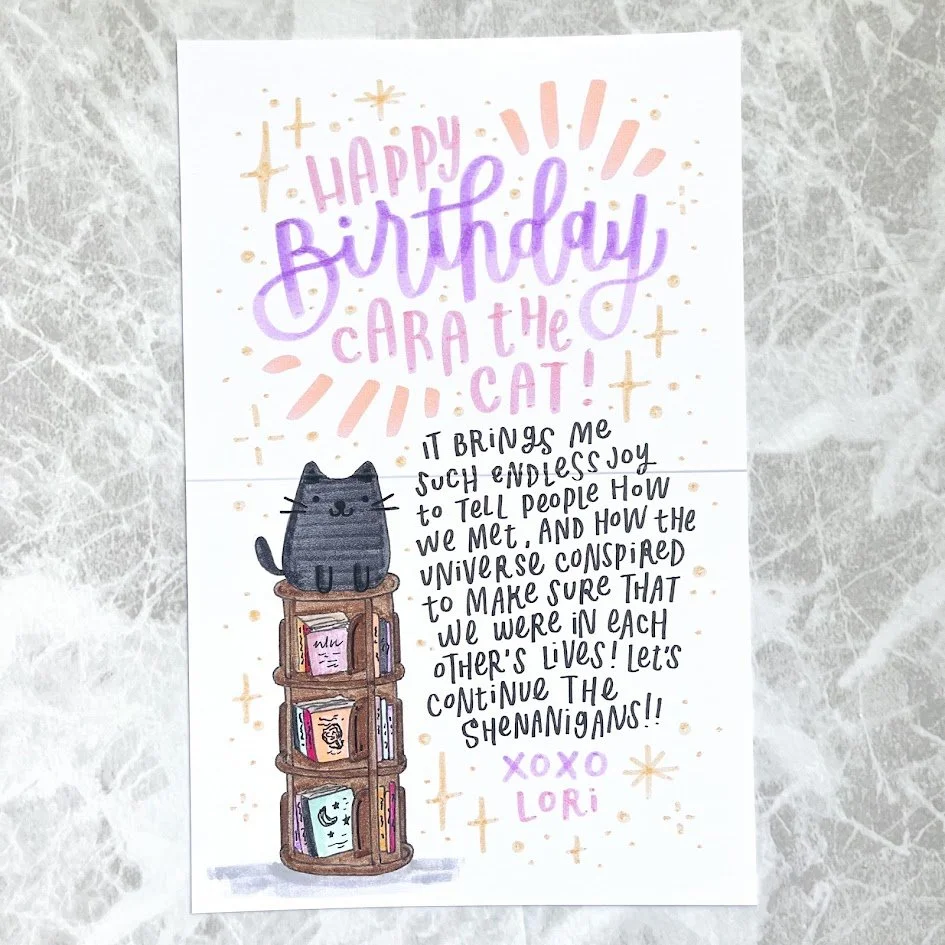 HAPPY
Birthday
CARA tHe
CAT!
iT BRiNgS Me
SUCH eNDLeSS JOy
to TeLL PeOPLe HOW
We MeT, AND HOW tHe
UNiVeRSe CONSPiReD
to MAKe SURe THAT
We WeRe iN eACH
OTHeR'S LiVeS! LeT'S
CONTiNUe THe
SHeNANigANS!!
XOXO
LORi